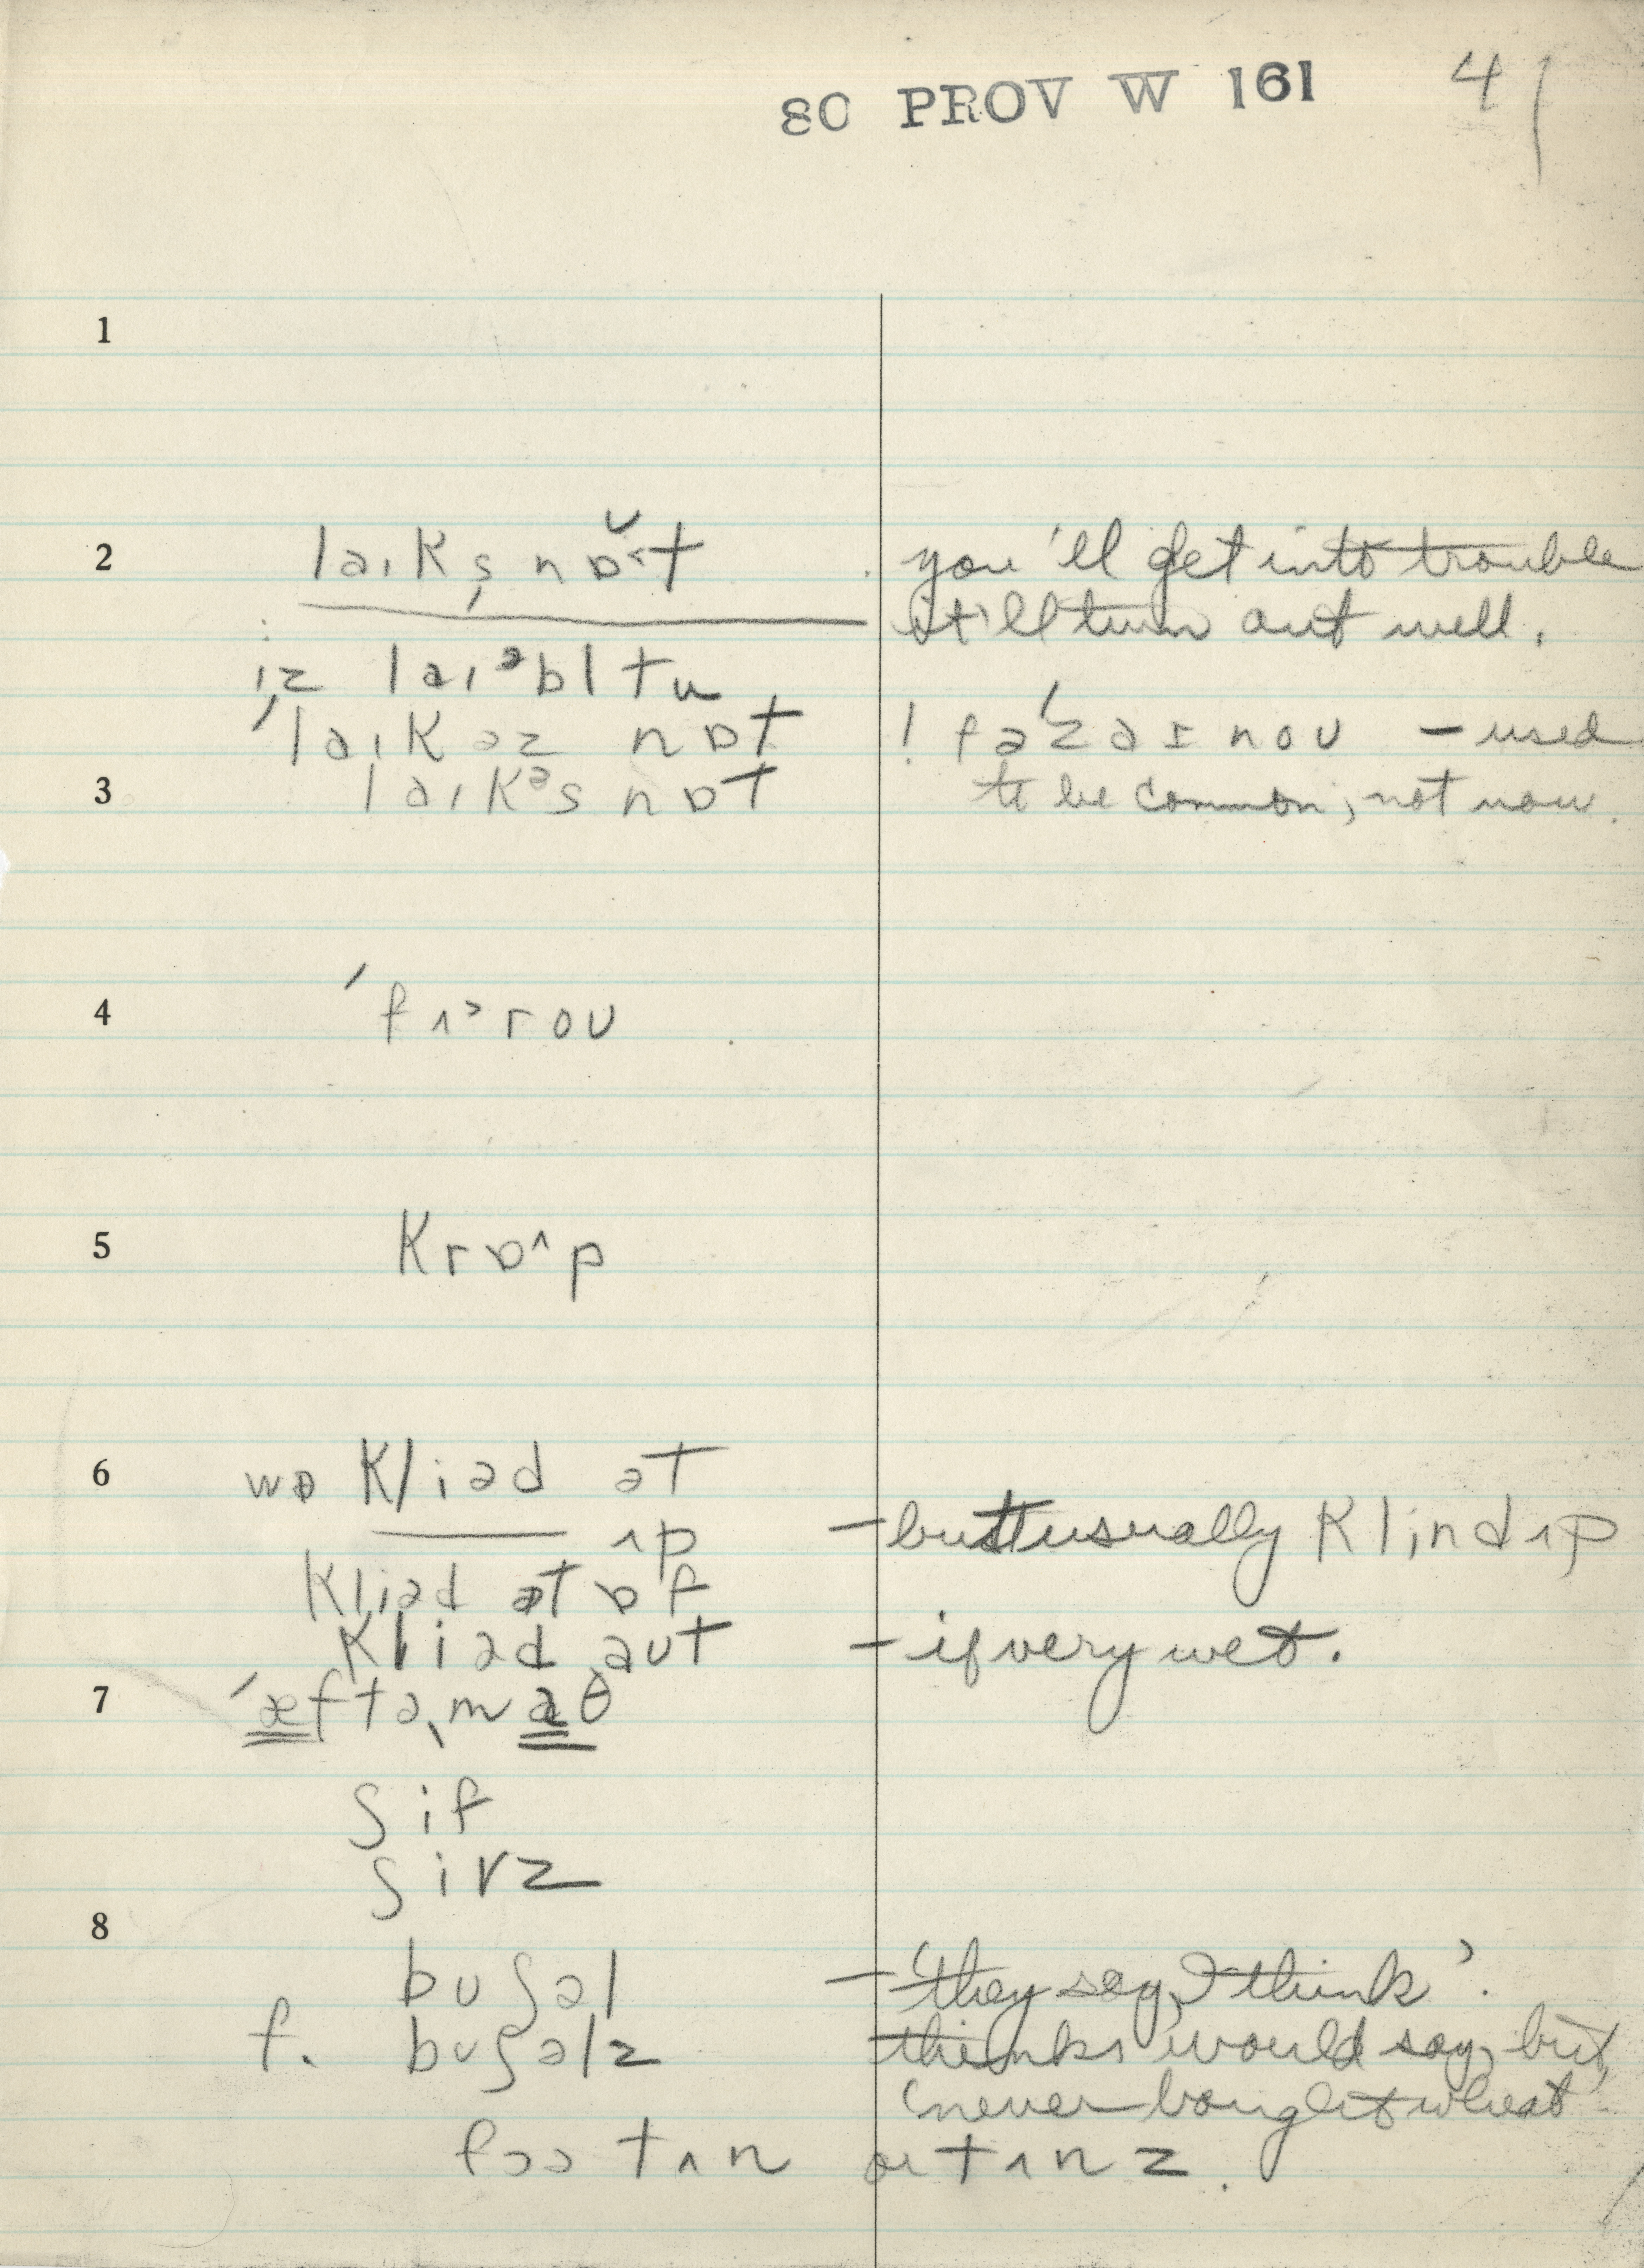 80 PROV W 161 41
1
2 laɪks̩ nɒˇt you'll get into trouble
it'll turn out well.
iz laɪᵊbl tu
ˈlaɪk əz nɒt ! faˈðə ɪ nou – used
3 laɪkᵊs nɒt to be common, not now.
4 ˈfʌᵊrou
5 krɒ^p
6 wɒ kliəd ət
ʌp – but usually klind ʌp
kliəd ət ɒf
kliəd aut – if very wet.
7 ˈæftəˌmaθ
ʃif
ʃivz
8 buʃəl – 'they say, I think'.
f. buʃəlz thinks would say, but
'never bought wheat'.
fɔə tʌn or tʌnz.